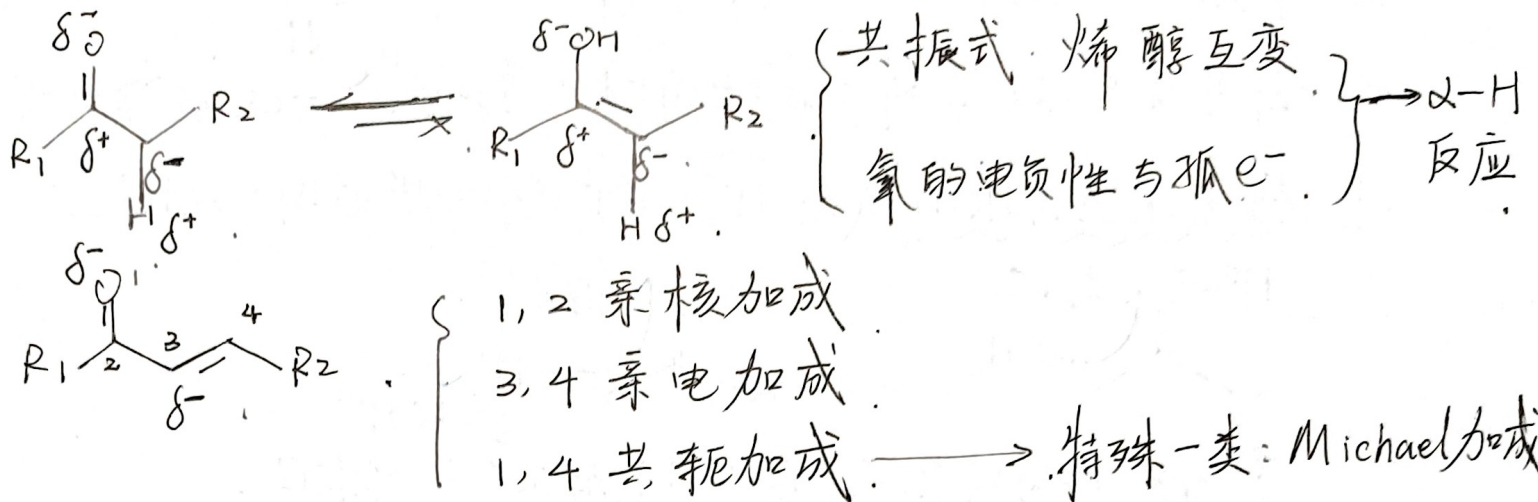 δ⁻O
R₁ δ⁺ δ⁻ R₂
H δ⁺
δ⁻OH
R₁ δ⁺ δ⁻ R₂
H δ⁺
共振式. 烯醇互变
氧的电负性与孤e⁻
→α-H
反应
δ⁻
O 1
R₁ 2 3 4 R₂
δ⁻
1,2 亲核加成
3,4 亲电加成
1,4 共轭加成 → 特殊一类: Michael加成